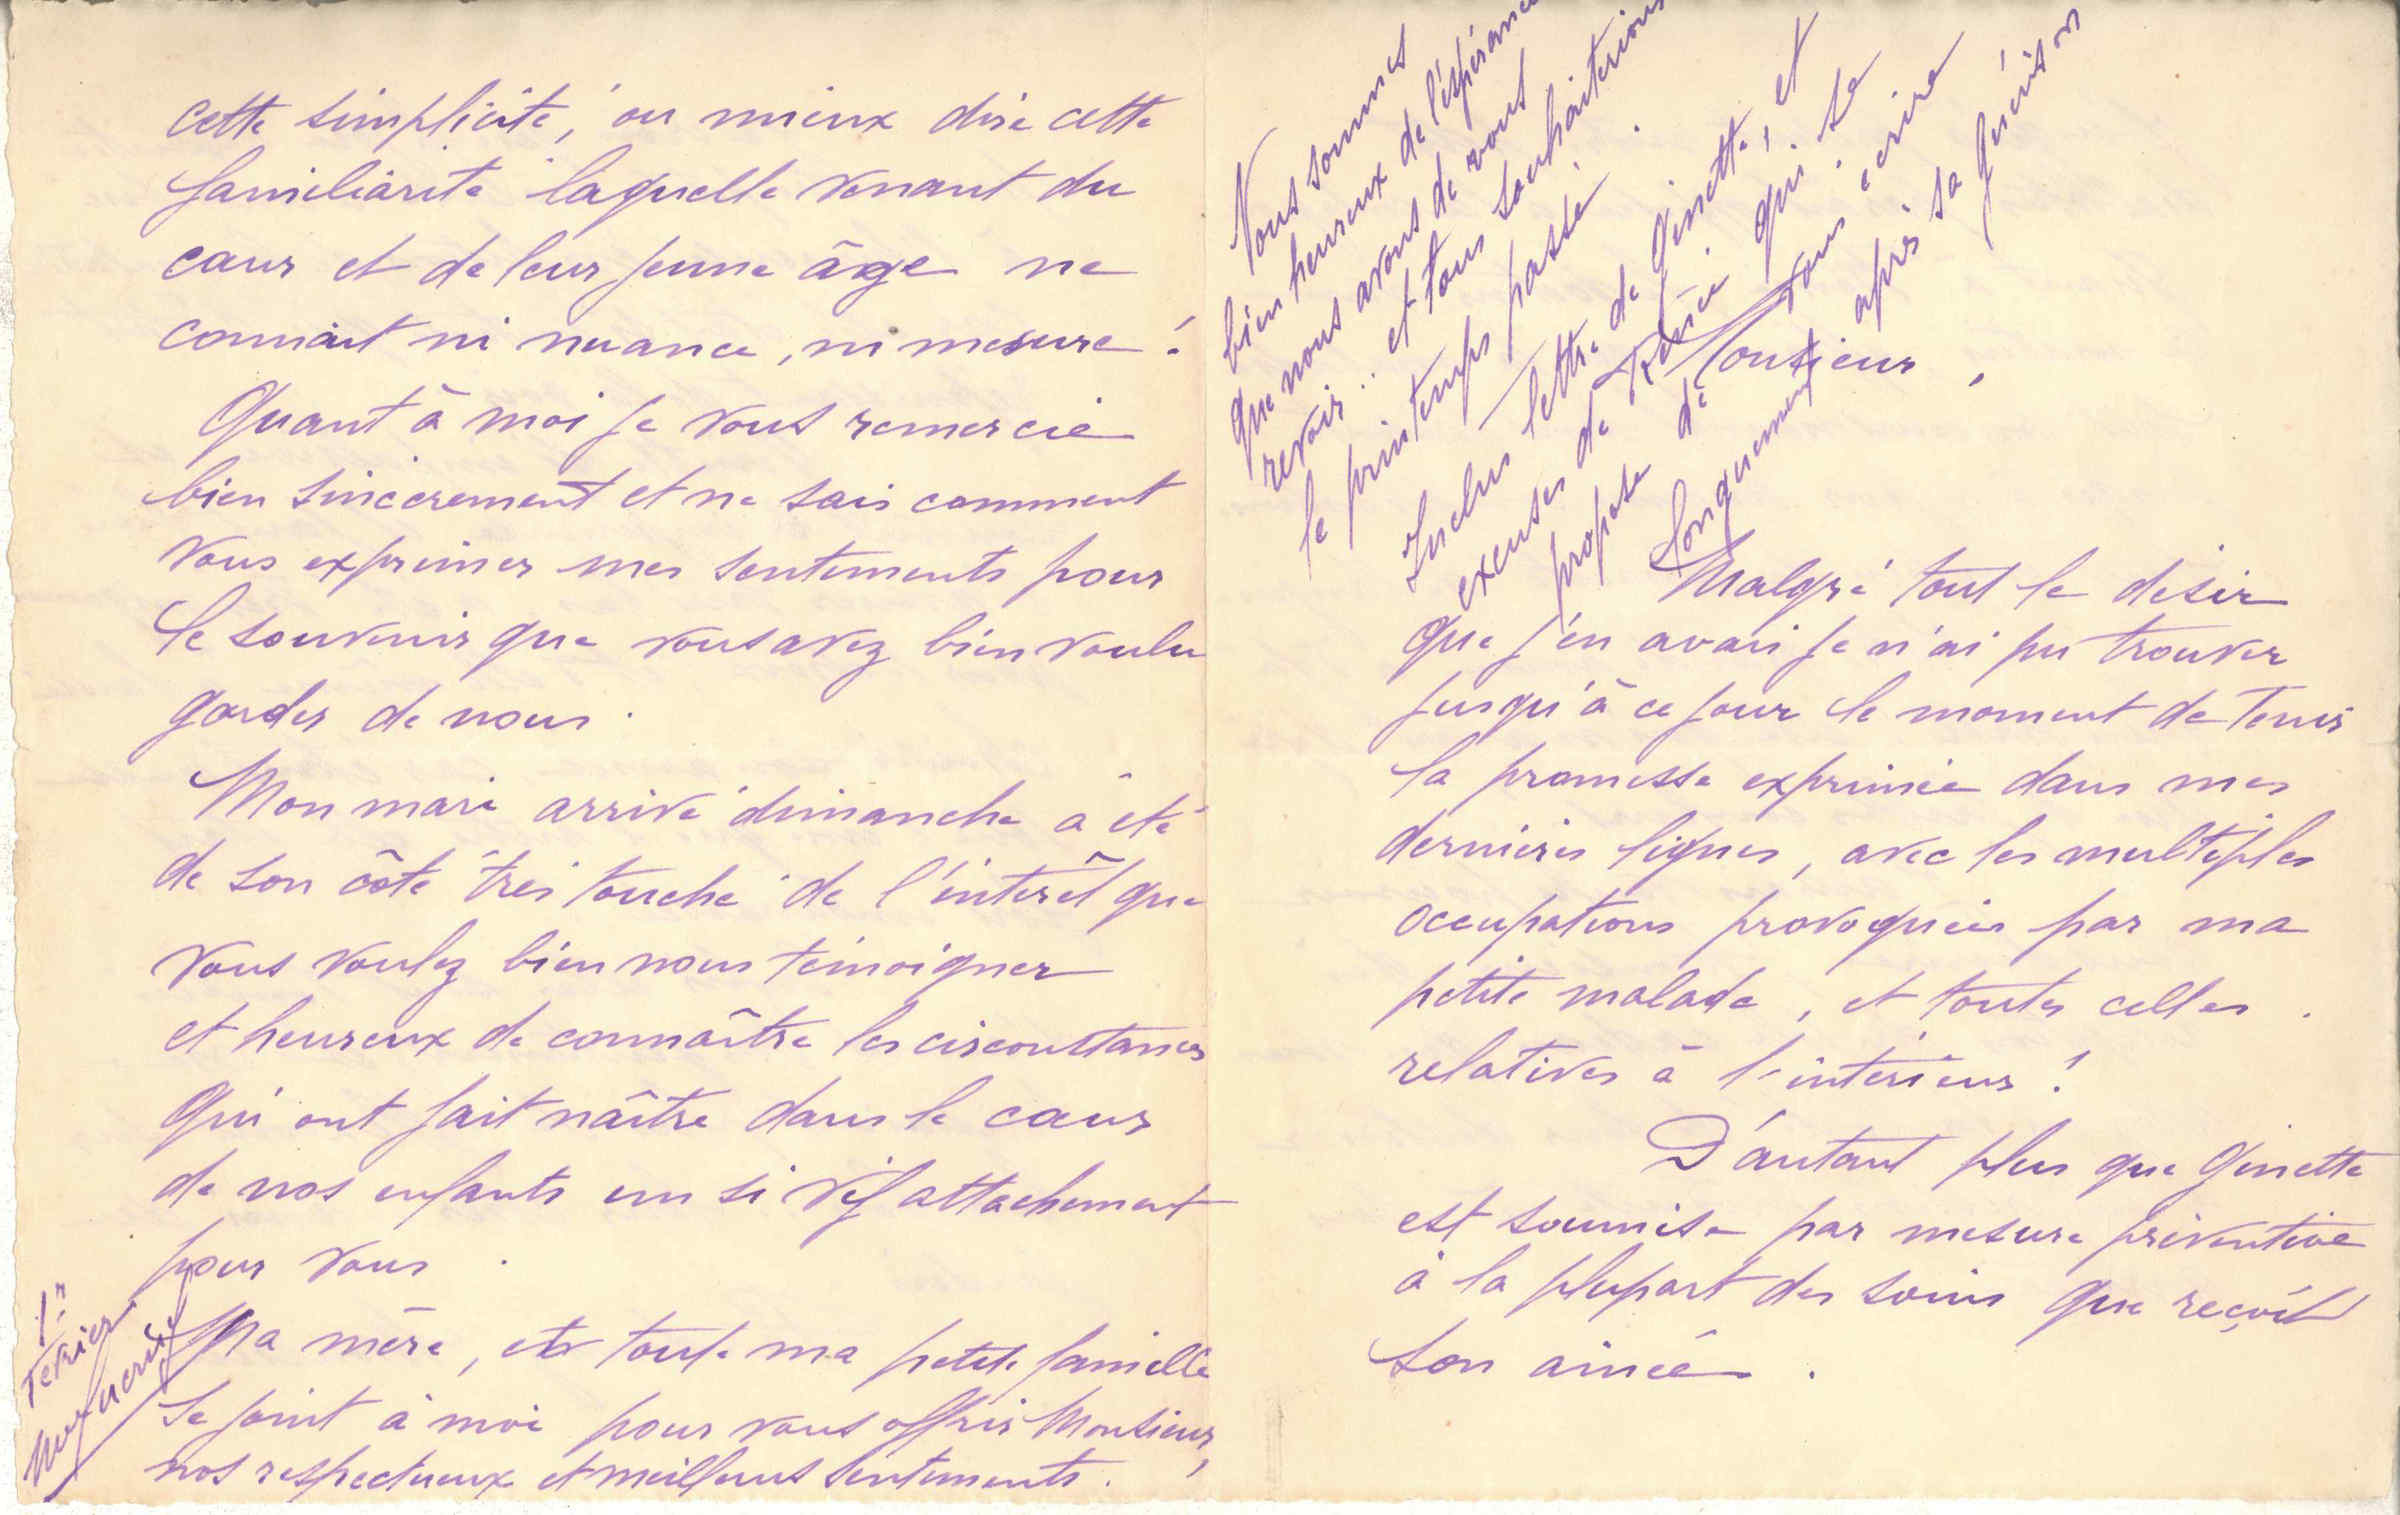 cette simplicité, ou mieux dire cette
familiarité laquelle venant du
cœur et de leur jeune âge ne
connait ni nuance, ni mesure !
Quant à moi je vous remercie
bien sincerement et ne sais comment
vous exprimer mes sentiments pour
le souvenir que vous avez bien voulu
garder de nous.
Mon mari arrivé dimanche a été
de son côté très touché de l'intérêt que
vous voulez bien nous témoigner
et heureux de connaître les circonstances
qui ont fait naître dans le cœur
de nos enfants un si vif attachement
pour vous.
Ma mère, et toute ma petite famille
se joint à moi pour vous offrir Monsieur,
nos respectueux et meilleurs sentiments.
Nous sommes
bien heureux de l'espérance
que nous avons de vous
revoir .. et tous souhaiterions
le printemps passé.
Inclus lettre de Ginette, et
excuses de Renée qui se
propose de vous écrire
longuement après sa guérison
Monsieur,
Malgré tout le desir
que j'en avais je n'ai pu trouver
jusqu'à ce jour le moment de tenir
la promesse exprimée dans mes
dernières lignes, avec les multiples
occupations provoquées par ma
petite malade, et toutes celles
relatives à l'intérieur !
D'autant plus que Ginette
est soumise par mesure préventive
à la plupart des soins que reçoit
son ainée.